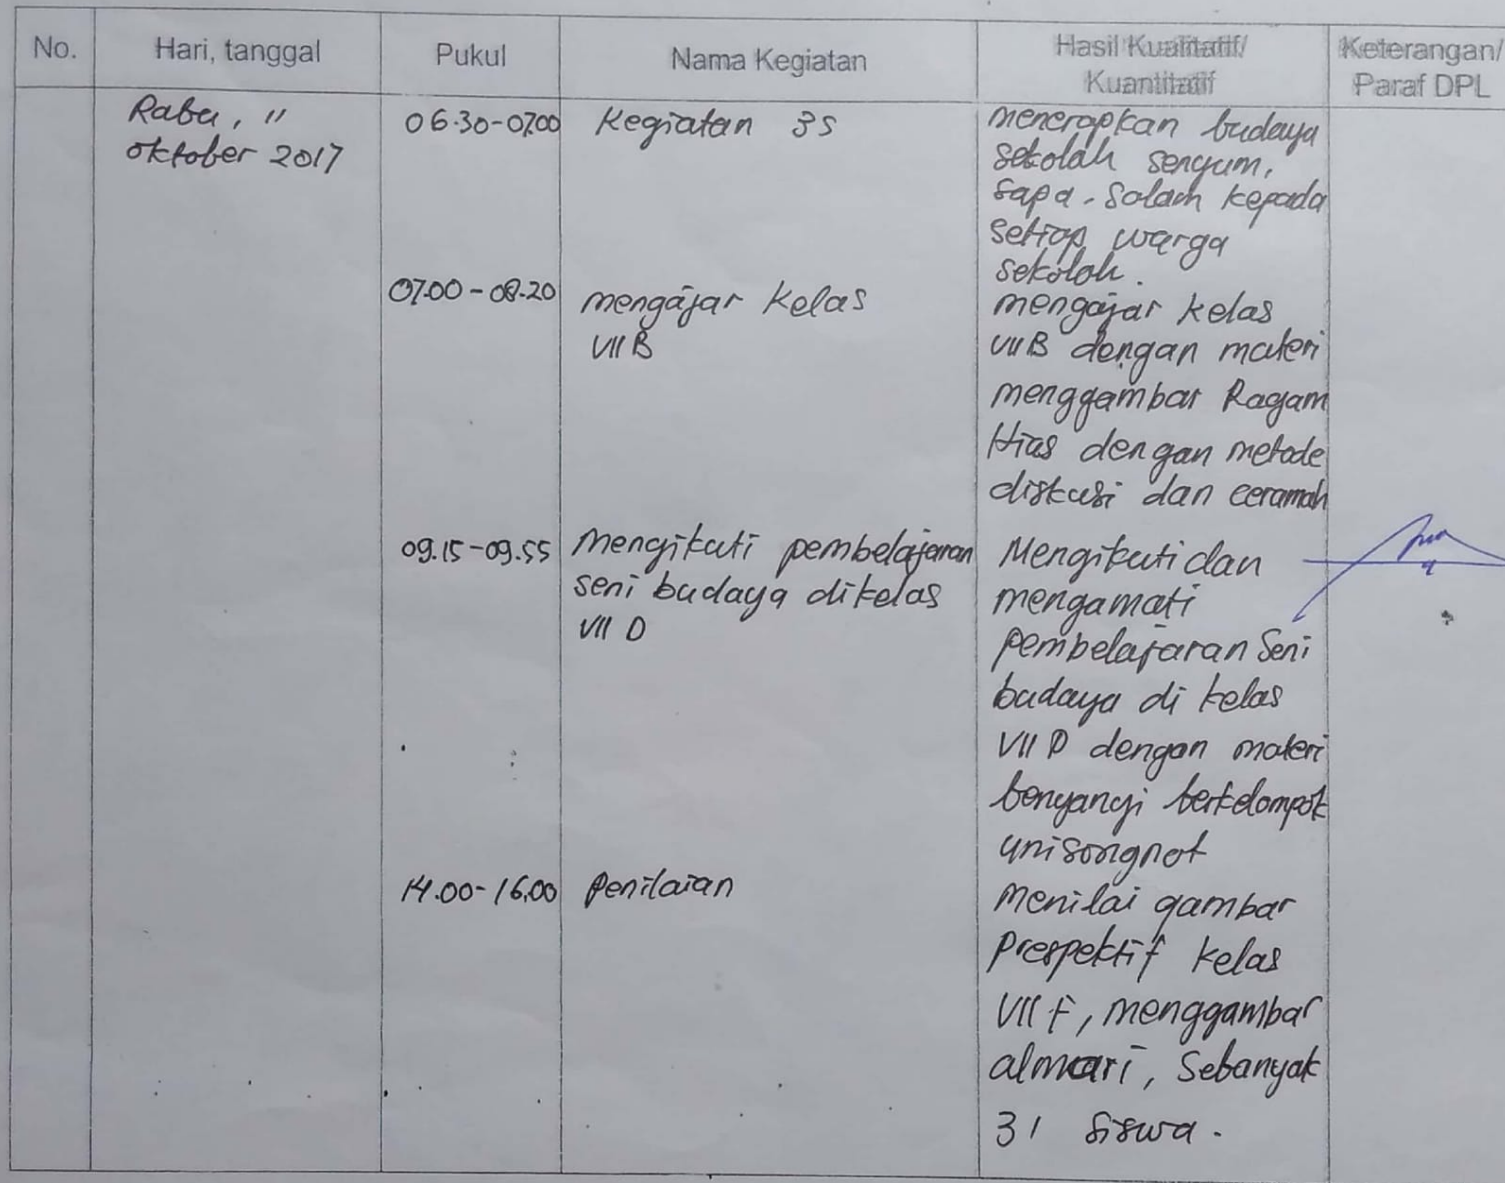 No.
Hari, tanggal
Pukul
Nama Kegiatan
Hasil Kualitatif/
Kuantitatif
Keterangan/
Paraf DPL
Rabu, 11
oktober 2017
06.30-07.00
Kegiatan 3S
menerapkan budaya
sekolah senyum,
sapa, salam kepada
setiap warga
sekolah.
07.00-08.20
mengajar kelas
VII B
mengajar kelas
VII B dengan materi
menggambar Ragam
Hias dengan metode
diskusi dan ceramah
09.15-09.55
Mengikuti pembelajaran
seni budaya dikelas
VII D
Mengikuti dan
mengamati
pembelajaran Seni
budaya di kelas
VII D dengan materi
benyanyi berkelompok
14.00-16.00
Penilaian
Menilai gambar
Prespektif kelas
VII F, menggambar
almari, Sebanyak
31 siswa.